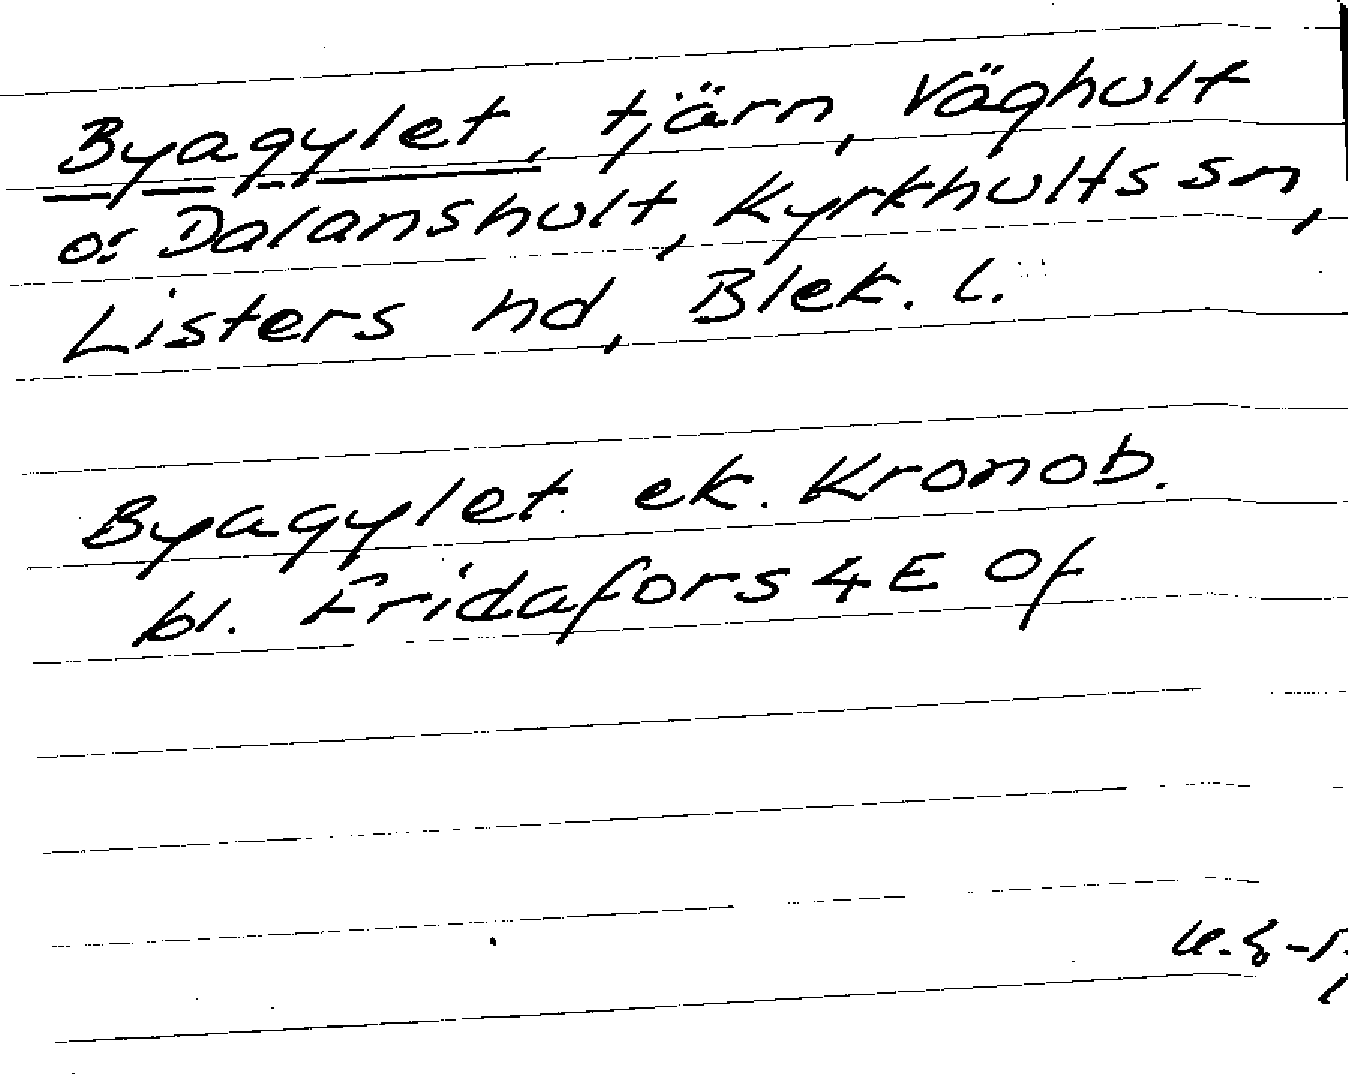 Byagylet, tjärn, Väghult
o: Dalanshult, Kyrkhults sn,
Listers hd, Blek. l.
Byagylet ek. Kronob.
bl. Fridafors 4 E Of